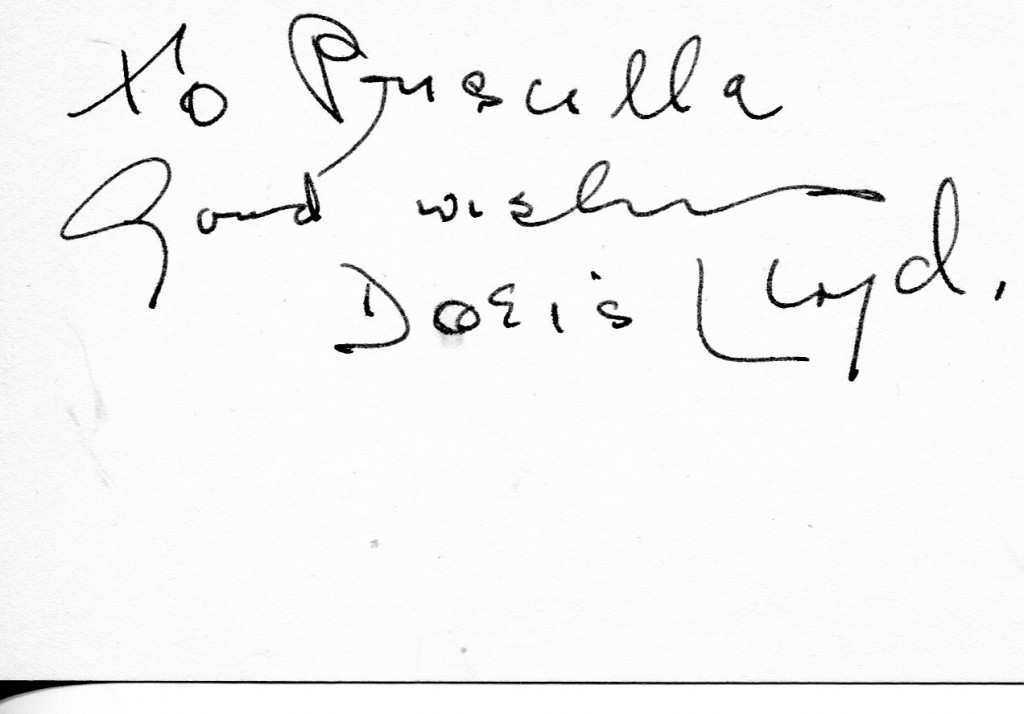 To Priscilla
Good wishes
Doris Lloyd.